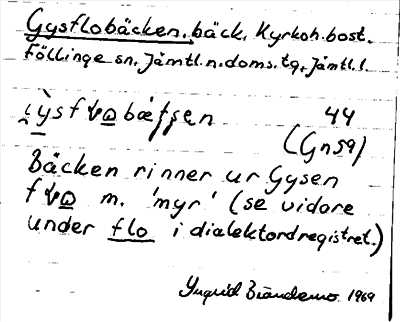 Gysflobäcken, bäck, Kyrkoh.bost.
Föllinge sn, Jämtl.n.doms.tg, Jämtl.l.
44
(Gn59)
Bäcken rinner ur Gysen
m. 'myr' (se vidare
under flo i dialektordregistret.)
Ingrid 1969